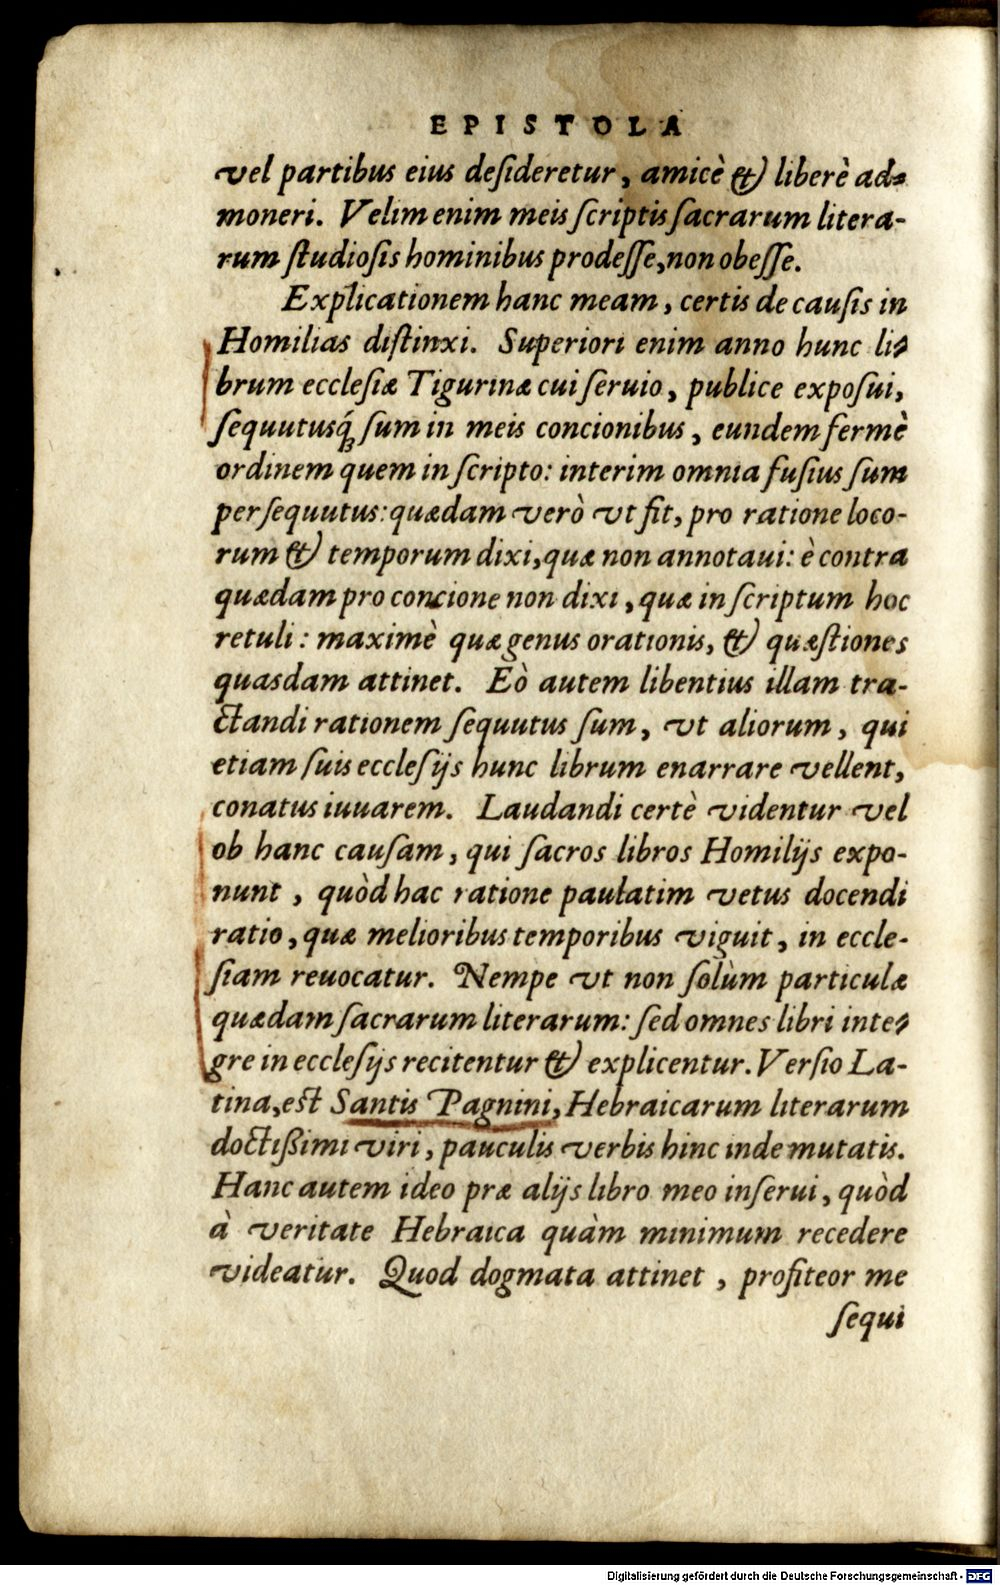 EPISTOLA
vel partibus eius deſideretur, amicè & liberè ad-
moneri. Velim enim meis ſcriptis ſacrarum litera-
rum ſtudioſis hominibus prodeſſe, non obeſſe.
Explicationem hanc meam, certis de cauſis in
Homilias diſtinxi. Superiori enim anno hunc li-
brum eccleſiæ Tigurinæ cui ſeruio, publice expoſui,
ſequutusq́ꝫ ſum in meis concionibus, eundem fermè
ordinem quem in ſcripto: interim omnia fuſius ſum
perſequutus: quædam verò vt fit, pro ratione loco-
rum & temporum dixi, quæ non annotaui: è contra
quædam pro concione non dixi, quæ in ſcriptum hoc
retuli: maximè quæ genus orationis, & quæſtiones
quasdam attinet. Eò autem libentius illam tra-
ctandi rationem ſequutus ſum, vt aliorum, qui
etiam ſuis eccleſijs hunc librum enarrare vellent,
conatus iuuarem. Laudandi certè videntur vel
ob hanc cauſam, qui ſacros libros Homilijs expo-
nunt, quòd hac ratione paulatim vetus docendi
ratio, quæ melioribus temporibus viguit, in eccle-
ſiam reuocatur. Nempe vt non ſolùm particulæ
quædam ſacrarum literarum: ſed omnes libri inte-
gre in eccleſijs recitentur & explicentur. Verſio La-
tina, eſt Santis Pagnini, Hebraicarum literarum
doctißimi viri, pauculis verbis hinc inde mutatis.
Hanc autem ideo præ alijs libro meo inſerui, quòd
à veritate Hebraica quàm minimum recedere
videatur. Quod dogmata attinet, profiteor me
ſequi
Digitalisierung gefördert durch die Deutsche Forschungsgemeinschaft - DFG